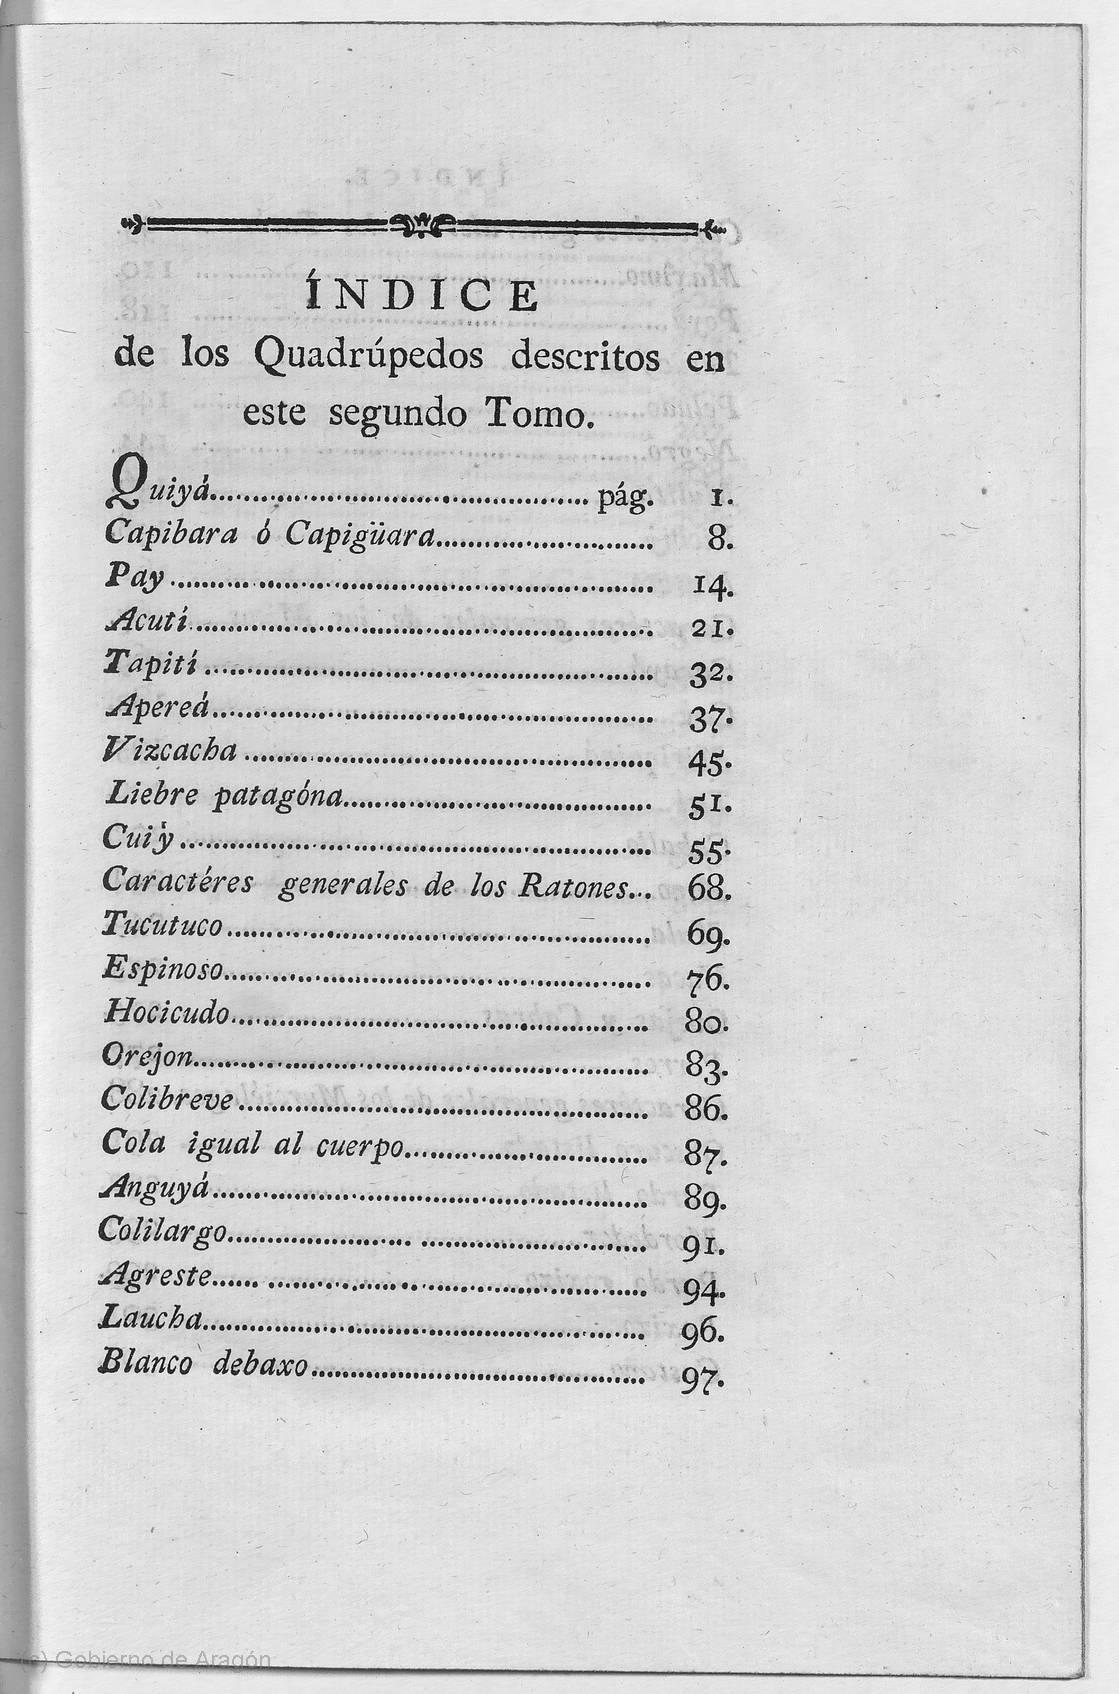 ÍNDICE
de los Quadrúpedos descritos en
este segundo Tomo.
Quiyá........................................ pág. 1.
Capibara ó Capigüara........................ 8.
Pay.................................................. 14.
Acutí................................................ 21.
Tapití............................................... 32.
Apereá............................................. 37.
Vizcacha.......................................... 45.
Liebre patagóna................................ 51.
Cuiý................................................. 55.
Caractéres generales de los Ratones... 68.
Tucutuco.......................................... 69.
Espinoso........................................... 76.
Hocicudo.......................................... 80.
Orejon.............................................. 83.
Colibreve.......................................... 86.
Cola igual al cuerpo.......................... 87.
Anguyá............................................. 89.
Colilargo........................................... 91.
Agreste............................................. 94.
Laucha.............................................. 96.
Blanco debaxo................................... 97.
(c) Gobierno de Aragón